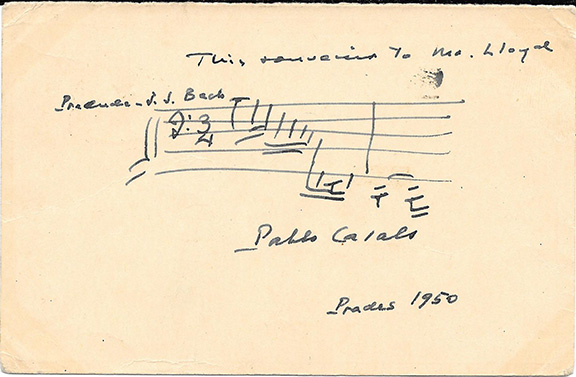 This souvenir to Mr. Lloyd
Prelude - J. S. Bach
3
4
Pablo Casals
Prades 1950